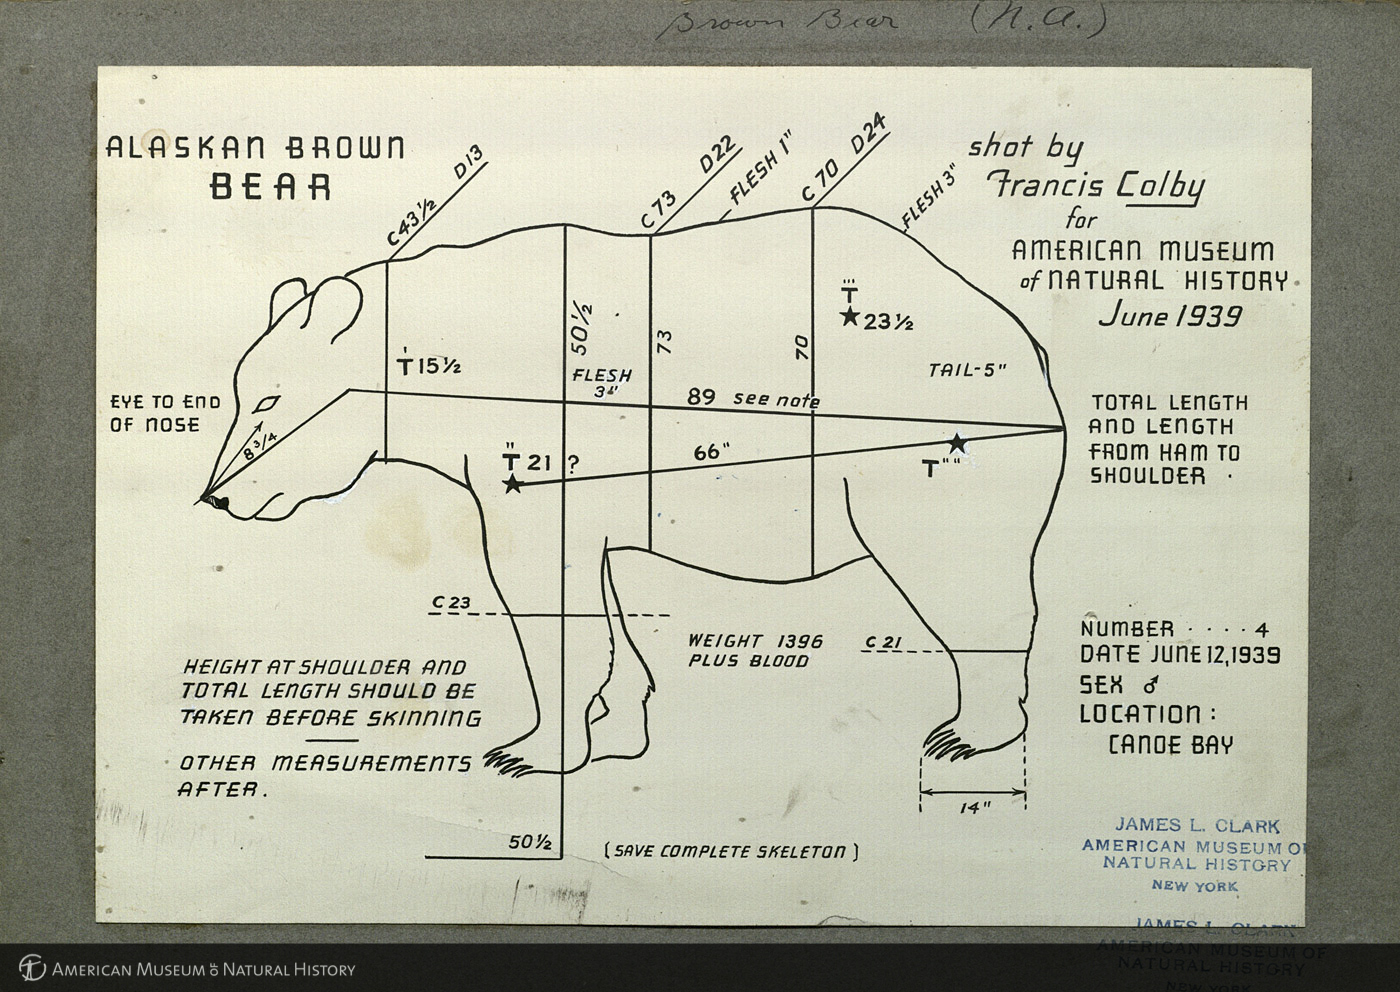 Brown Bear (N.A.)
ALASKAN BROWN
BEAR
C 43½ D13
C 73 D22
FLESH 1"
C 70 D24
FLESH 3"
shot by
Francis Colby
for
AMERICAN MUSEUM
of NATURAL HISTORY.
June 1939
T' 15½
50½
FLESH
3"
73
70
T''' 23½
TAIL-5"
89 see note
66"
T'' 21 ?
T""
EYE TO END
OF NOSE
8 3/4
TOTAL LENGTH
AND LENGTH
FROM HAM TO
SHOULDER
C 23
C 21
WEIGHT 1396
PLUS BLOOD
HEIGHT AT SHOULDER AND
TOTAL LENGTH SHOULD BE
TAKEN BEFORE SKINNING
OTHER MEASUREMENTS
AFTER.
NUMBER ···· 4
DATE JUNE 12, 1939
SEX ♂
LOCATION:
CANOE BAY
14"
50½
(SAVE COMPLETE SKELETON)
JAMES L. CLARK
AMERICAN MUSEUM OF
NATURAL HISTORY
NEW YORK
JAMES L. CLARK
AMERICAN MUSEUM OF
NATURAL HISTORY
NEW YORK
AMERICAN MUSEUM OF NATURAL HISTORY